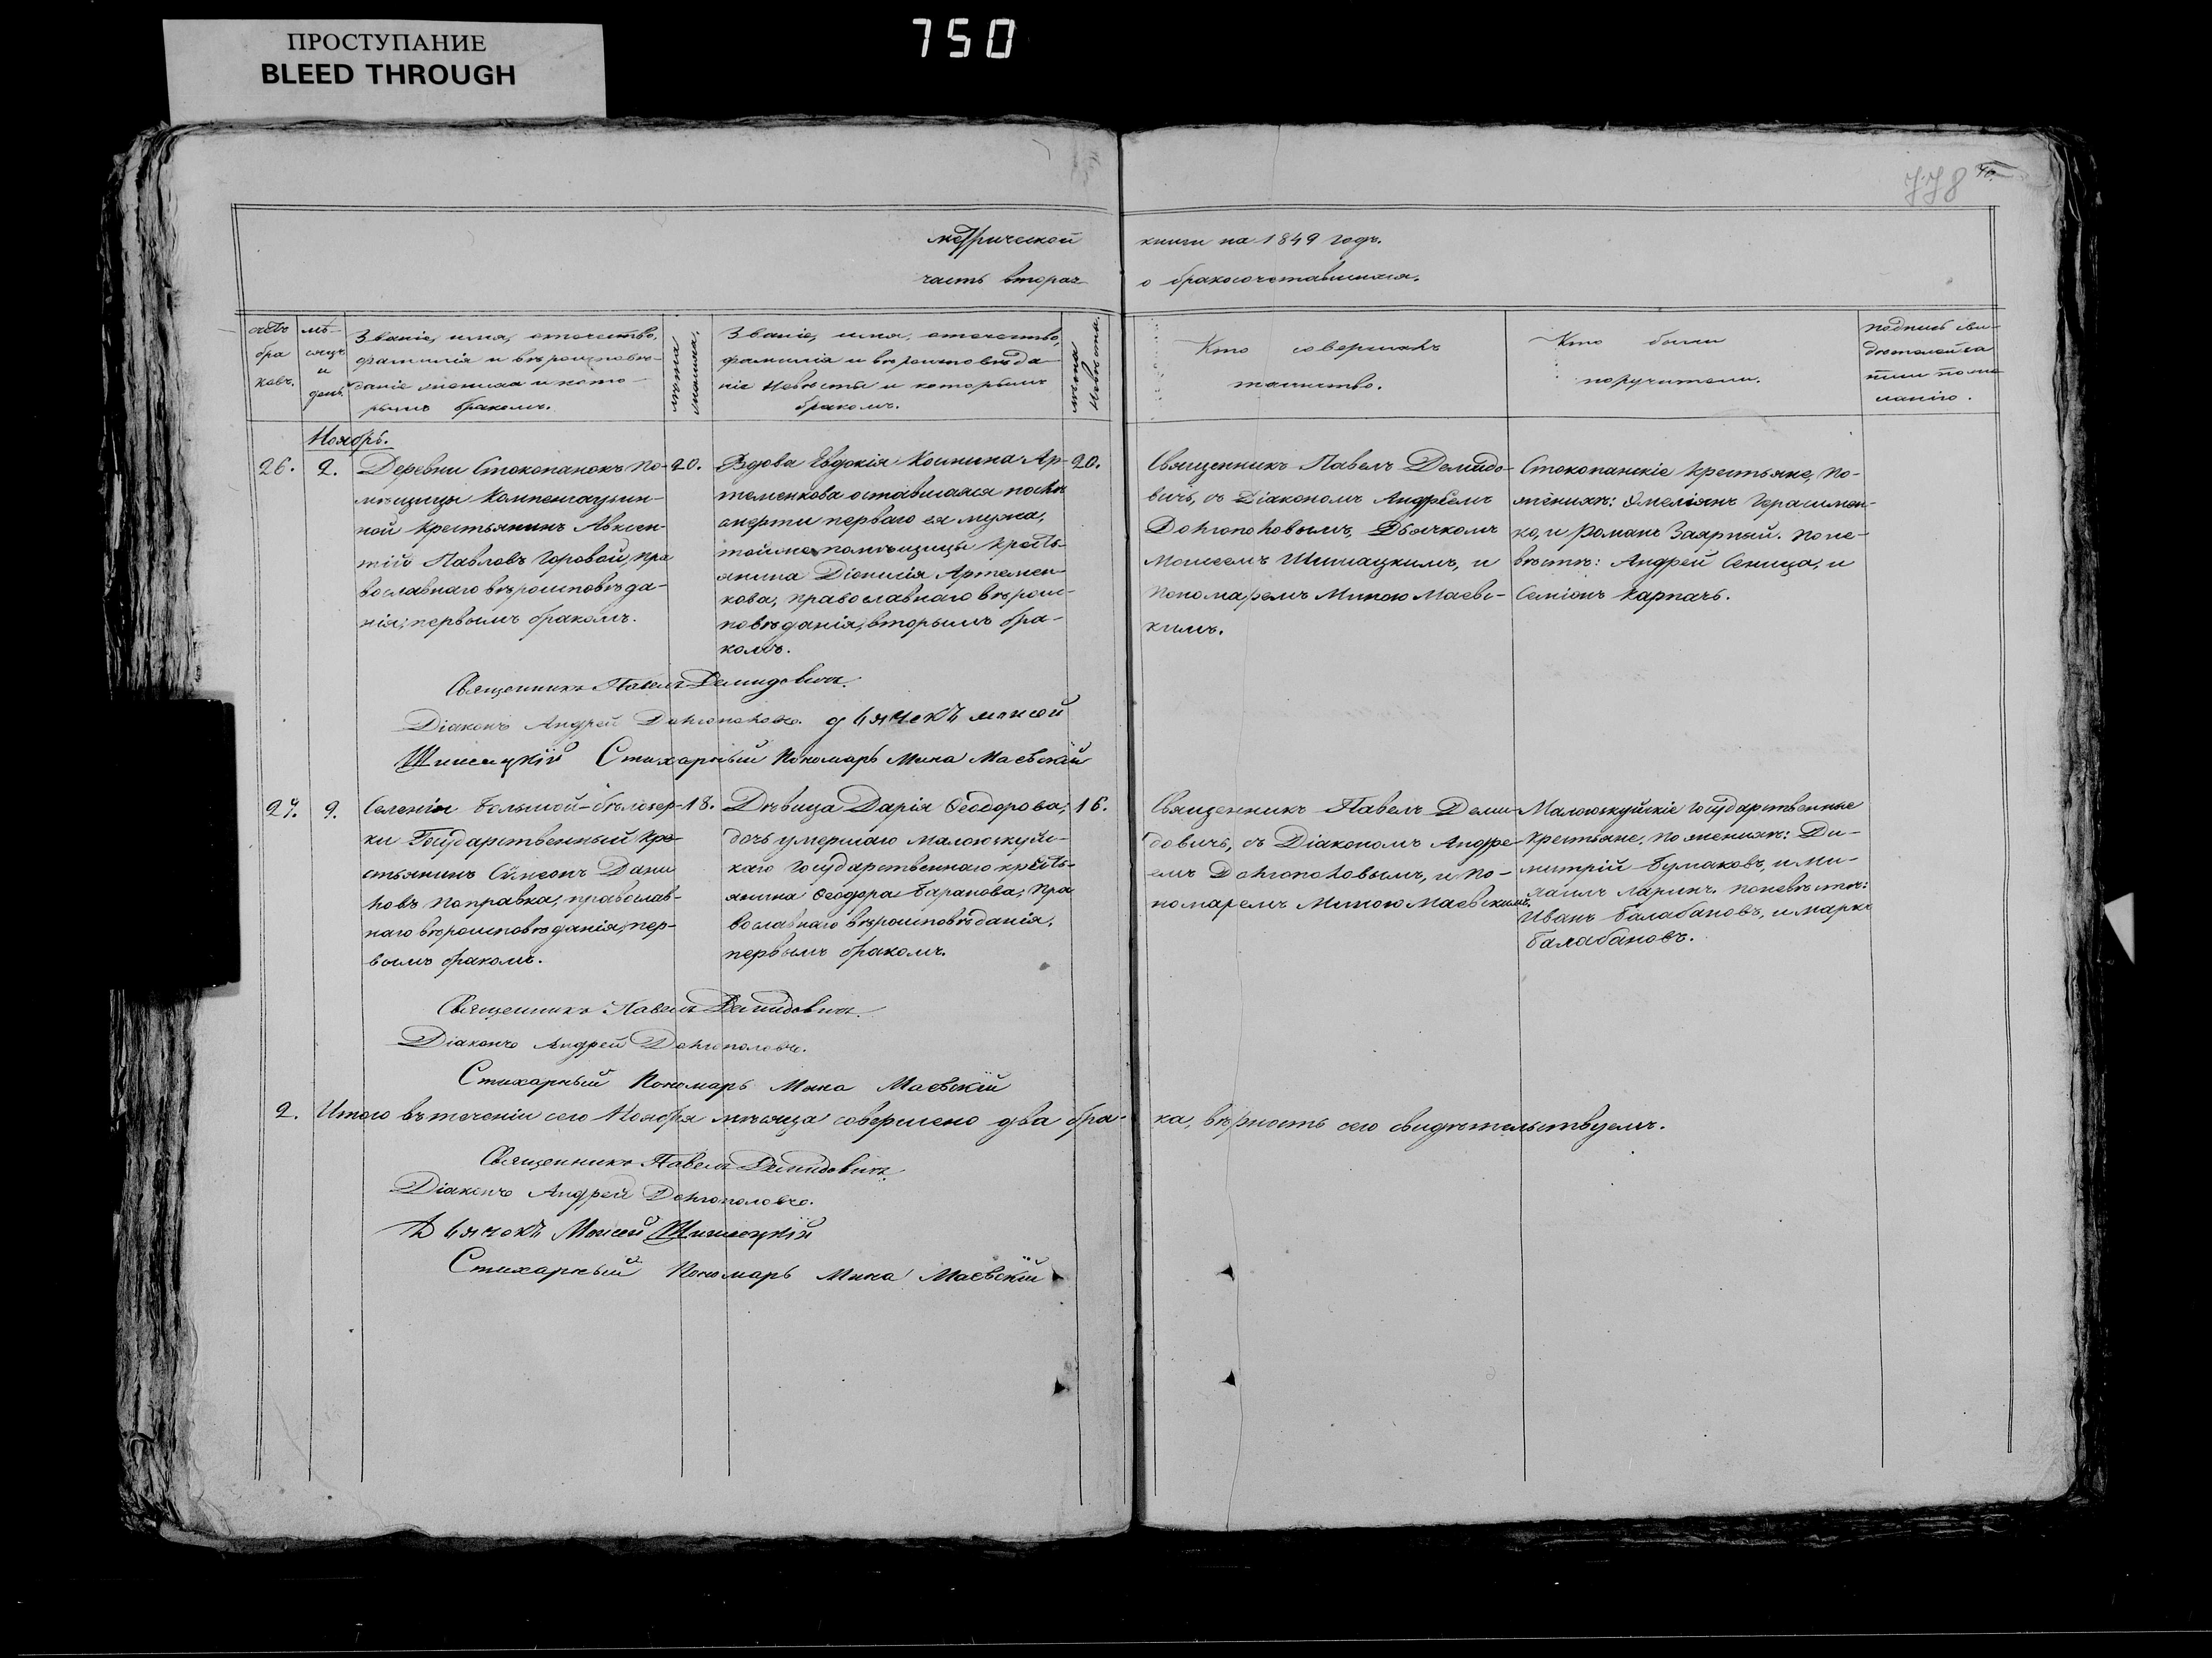 ПРОСТУПАНИЕ
BLEED THROUGH
750
778
метрической
книги на 1849 годъ.
часть вторая
о бракосочетавшихся.
счетъ
бра
ковъ.
мѣ-
сяцъ
и
день.
Званіе, имя, отечество,
фамилія и вѣроисповѣ-
даніе жениха и кото-
рымъ бракомъ.
лѣта
жениха.
Званіе, имя, отечество,
фамилія и вѣроисповѣда-
ніе невѣсты и которымъ
бракомъ.
лѣта
невѣсты.
Кто совершалъ
таинство.
Кто были
поручители.
подпись сви-
дѣтелей за
писи по же
ланію.
Ноябрь.
26.
2.
Деревни Стокопанокъ по-
мѣщицы Компенгаузин-
ной крестьянинъ Авксен-
тій Павловъ Горовой, пра
вославнаго вѣроисповѣда-
нія, первымъ бракомъ.
20.
Вдова Евдокія Космина Ар-
теменкова оставшаяся послѣ
смерти перваго ея мужа,
тойже помѣщицы кресть-
янина Діонисія Артемен-
кова, православнаго вѣроис-
повѣданія, вторымъ бра-
комъ.
20.
Священникъ Павелъ Демидо-
вичъ, съ Діакономъ Андреемъ
Долгополовымъ, Дьячкомъ
Моисеемъ Шишацкимъ, и
Пономаремъ Миною Маевс-
кимъ.
Стокопанскіе крестьяне, по-
женихѣ: Омеліянъ Герасимен-
ко, и Романъ Заярный. по не-
вѣстѣ: Андрей Сеница, и
Семіонъ Карпачъ.
Священникъ Павелъ Демидовичъ.
Діаконъ Андрей Долгополовъ. дьячекъ моисей
Шишацкій Стихарный Пономарь Мина Маевскій
27.
9.
Селенія Большой-бѣлозер-
ки Государственный кре-
стьянинъ Сѵмеонъ Дани
ловъ Поправка, православ-
наго вѣроисповѣданія, пер-
вымъ бракомъ.
18.
Дѣвица Дарія Ѳеодорова,
дочь умершаго
каго Государственнаго кресть-
янина Ѳеодора Баранова, пра
вославнаго вѣроисповѣданія,
первымъ бракомъ.
16.
Священникъ Павелъ Деми-
довичъ, съ Діакономъ Андре-
емъ Долгополовымъ, и По-
номаремъ Миною Маевскимъ.
Государственные
крестьяне, по женихѣ: Ди-
митрій Бумаковъ, и Ми-
хаилъ Ларинъ. по невѣстѣ:
Иванъ Балабановъ, и Марко
Балабановъ.
Священникъ Павелъ Демидовичъ.
Діаконъ Андрей Долгополовъ.
Стихарный Пономарь Мина Маевскій
2. Итого въ теченіи сего Ноября мѣсяца совершено два бра-
ка, вѣрность сего свидѣтельствуемъ.
Священникъ Павелъ Демидовичъ.
Діаконъ Андрей Долгополовъ.
Дьячокъ Моисей Шишацкій
Стихарный Пономарь Мина Маевскій